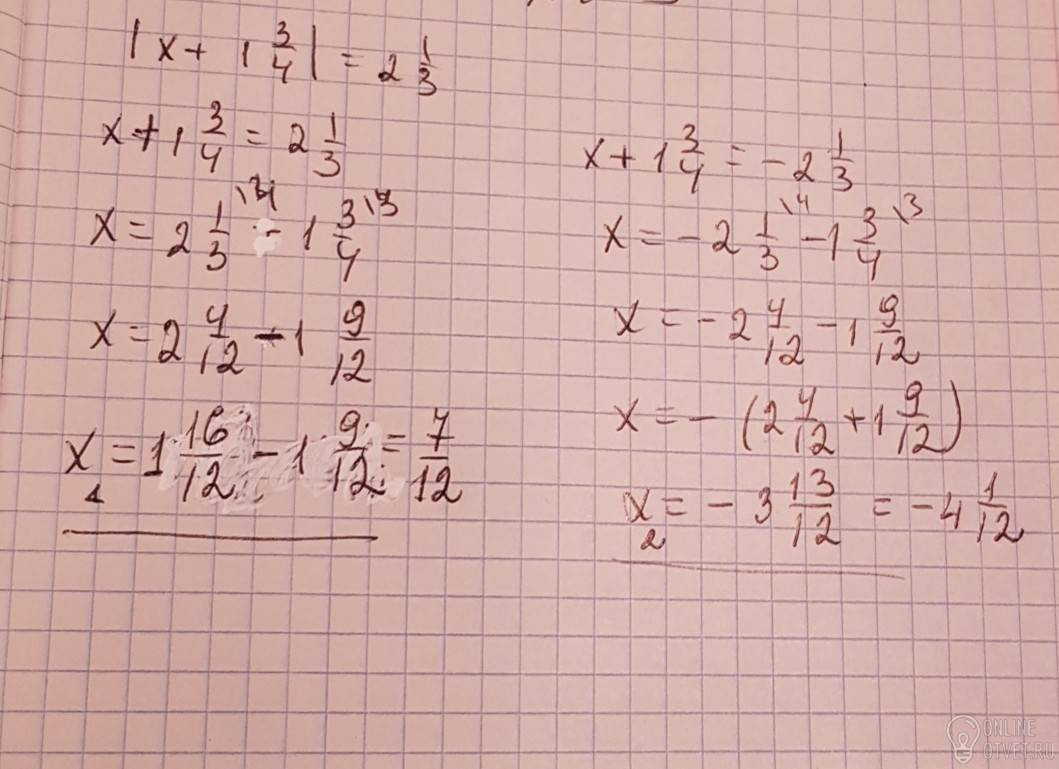 |x + 1 3/4| = 2 1/3
x + 1 3/4 = 2 1/3
x = 2 1/3 \4 - 1 3/4 \3
x = 2 4/12 - 1 9/12
x₁ = 1 16/12 - 1 9/12 = 7/12
x + 1 3/4 = - 2 1/3
x = - 2 1/3 \4 - 1 3/4 \3
x = - 2 4/12 - 1 9/12
x = - (2 4/12 + 1 9/12)
x₂ = - 3 13/12 = - 4 1/12
ONLINE
OTVET.RU